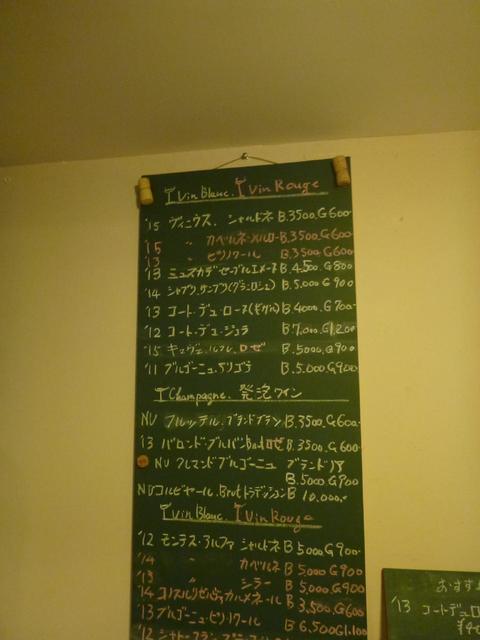 Vin Blanc. Vin Rouge
'15 ヴィニウス. シャルドネ B.3500.G600-
'15 〃 カベルネ・メルロー B.3500.G600-
'13 〃 ピノノワール B.3500.G600
'13 ミュスカデセーブルエメーヌ B.4,500.G800
'14 シャブリ.サンプラ(グランロシュ) B.5,000.G900
'13 コート・デュ・ローヌ(ギガル) B.4000.G700-
'12 コート・デュ・ジュラ B.7,000.G1,200
'15 キュヴェ. ロゼ B.5000.G900
'11 ブルゴーニュ.アリゴテ B.5,000.G900
Champagne. 発泡ワイン
NV フルッテル.ブランドブラン B.3500.G600-
'13 バロンド・ブルバン Brutロゼ B.3500.G600
NV クレマンドブルゴーニュ ブランドノワ
B.5000.G900
NV コルビヤール.Brutトラディション B 10,000.-
Vin Blanc. Vin Rouge
'12 モンテス・アルファ シャルドネ B 5000.G900-
'14 〃 カベルネ B 5,000 G900
'13 〃 シラー B 5,000.G900
'14 コノスル カルメネール B 3,500.G600
'13 ブルゴーニュ・ピノノワール B 6.500G1,100
'12 シャトー
おすす
'13 コートデュロ